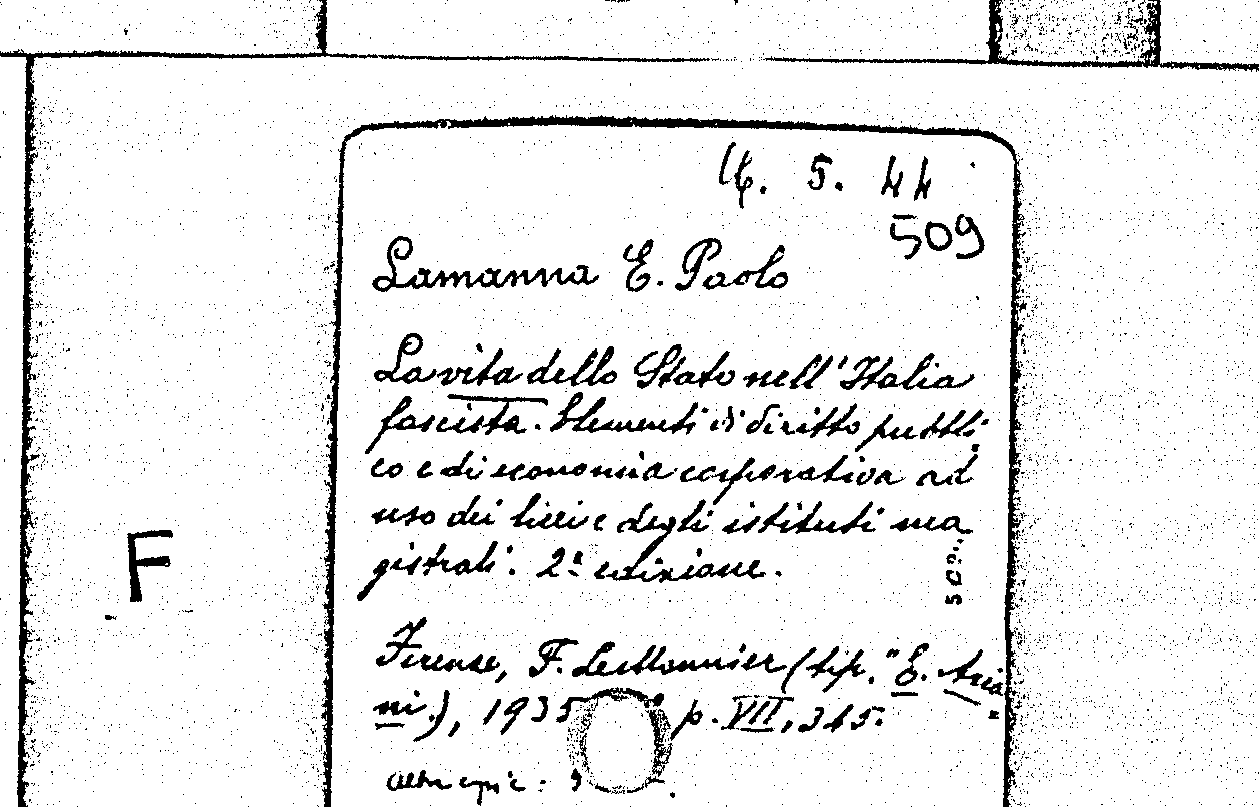 16. 5. 44
509
Lamanna E. Paolo
La vita dello Stato nell'Italia
fascista. Elementi di diritto pubbli
co e di economia corporativa ad
uso dei licei e degli istituti ma
gistrali. 2ª edizione.
F
Firenze, F. Le Monnier (tip. "E. Aria
ni"), 1935 p. VII, 315.
altra copia: